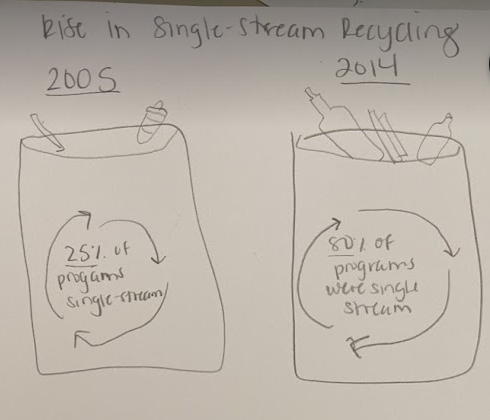 Rise in Single-Stream Recycling
2005
2014
25% of
progams
single-stream
80% of
programs
were single
stream